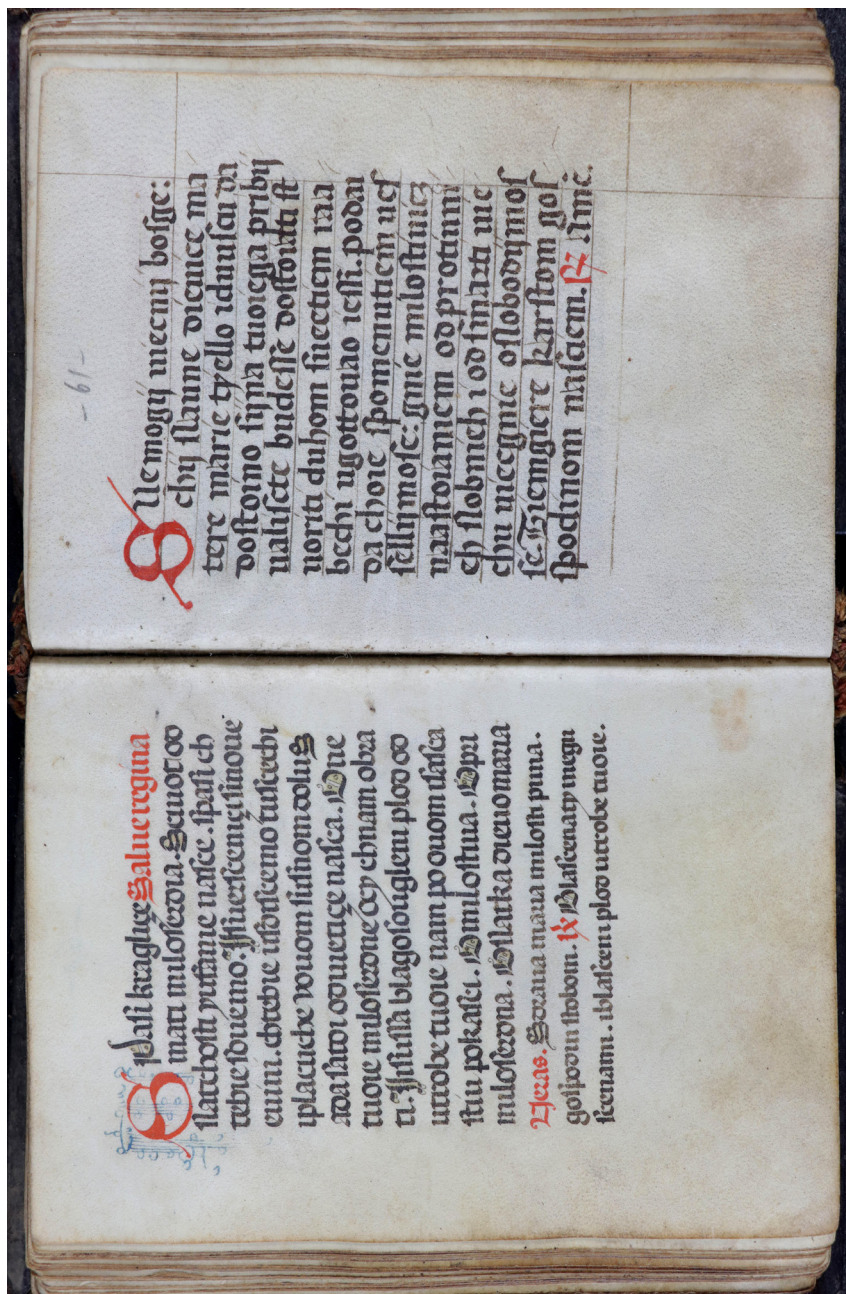 Spasi kraglice Salue regina
mati miloserdia. Sciuot od
slatchosti yuffanie nasce. spasi ch
tebie sduemo. Isfuersceniçi sinoue
euini. chtebie usdiscemo tuscechi
iplacuche vouom susnom dolu S
ada sardi oduietniçe nasca. One
tuoie miloserdne oçy chnam obra
ti. Iisussa blagosouglem plod od
utrobe tuoie nam po ouom isasca
stiu pokasci. O milostiua. O pri
miloserdna. O slatka dieuo maria
Vyeras. Sdraua maria milosti puna.
gospodin stobom. R Blascenaty megu
scenami. iblascem plod utrobe tuoie.
- 61 -
Sue mogij uiecnij bosge:
chij slaune dieuice ma
tere marie tyello idauscu da
dostoino sijna tuoiega pribij
ualiscte budesse dostoiati st
uoriti duhom suectiem raa
bechi ugottouao iessi. podai
da choie spomenutiem ues
sellijmose: gnie milostiuiez
naastoianiem od protiuni
eh slobnich i od smarti uie
chu uieegnie oslobodijmos
se. Tsiemgiere karstom gos
spodinom nasciem. R Amen.